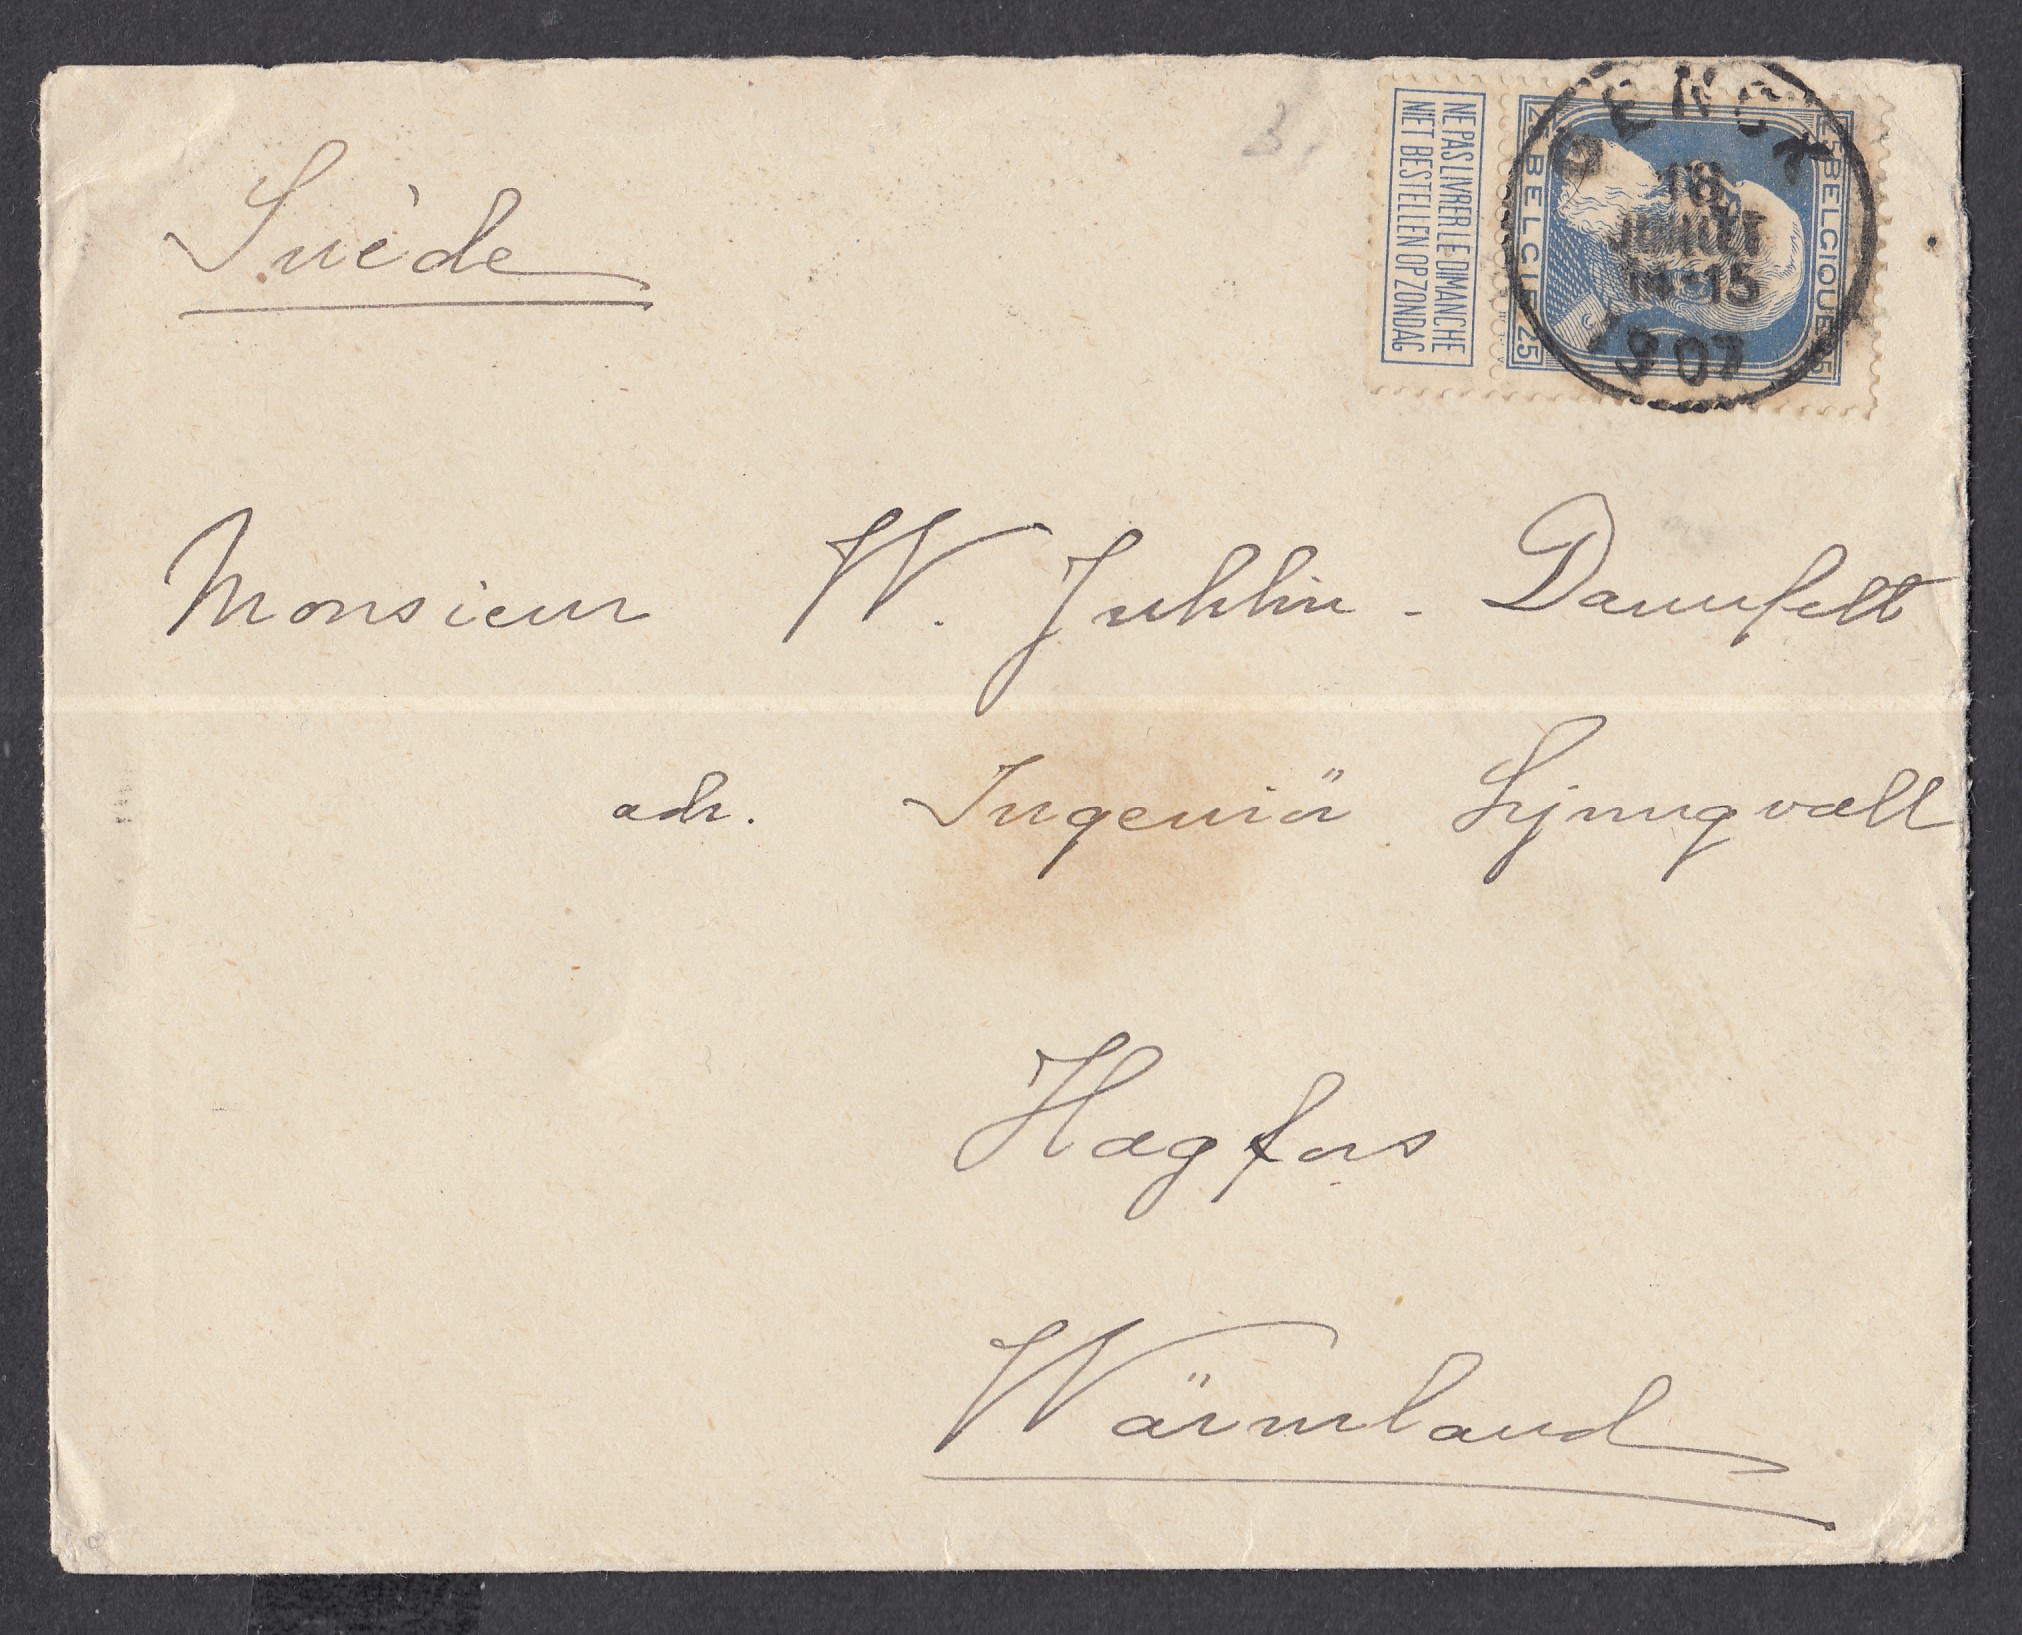 Suède
NE PAS LIVRER LE DIMANCHE
NIET BESTELLEN OP ZONDAG
25 BELGIE 25
25 BELGIQUE 25
GENCK
18
JUILLET
14-15
1907
Monsieur W. Juhlin-Dannfelt
adr. Ingeniör Ljungvall
Hagfors
Wärmland